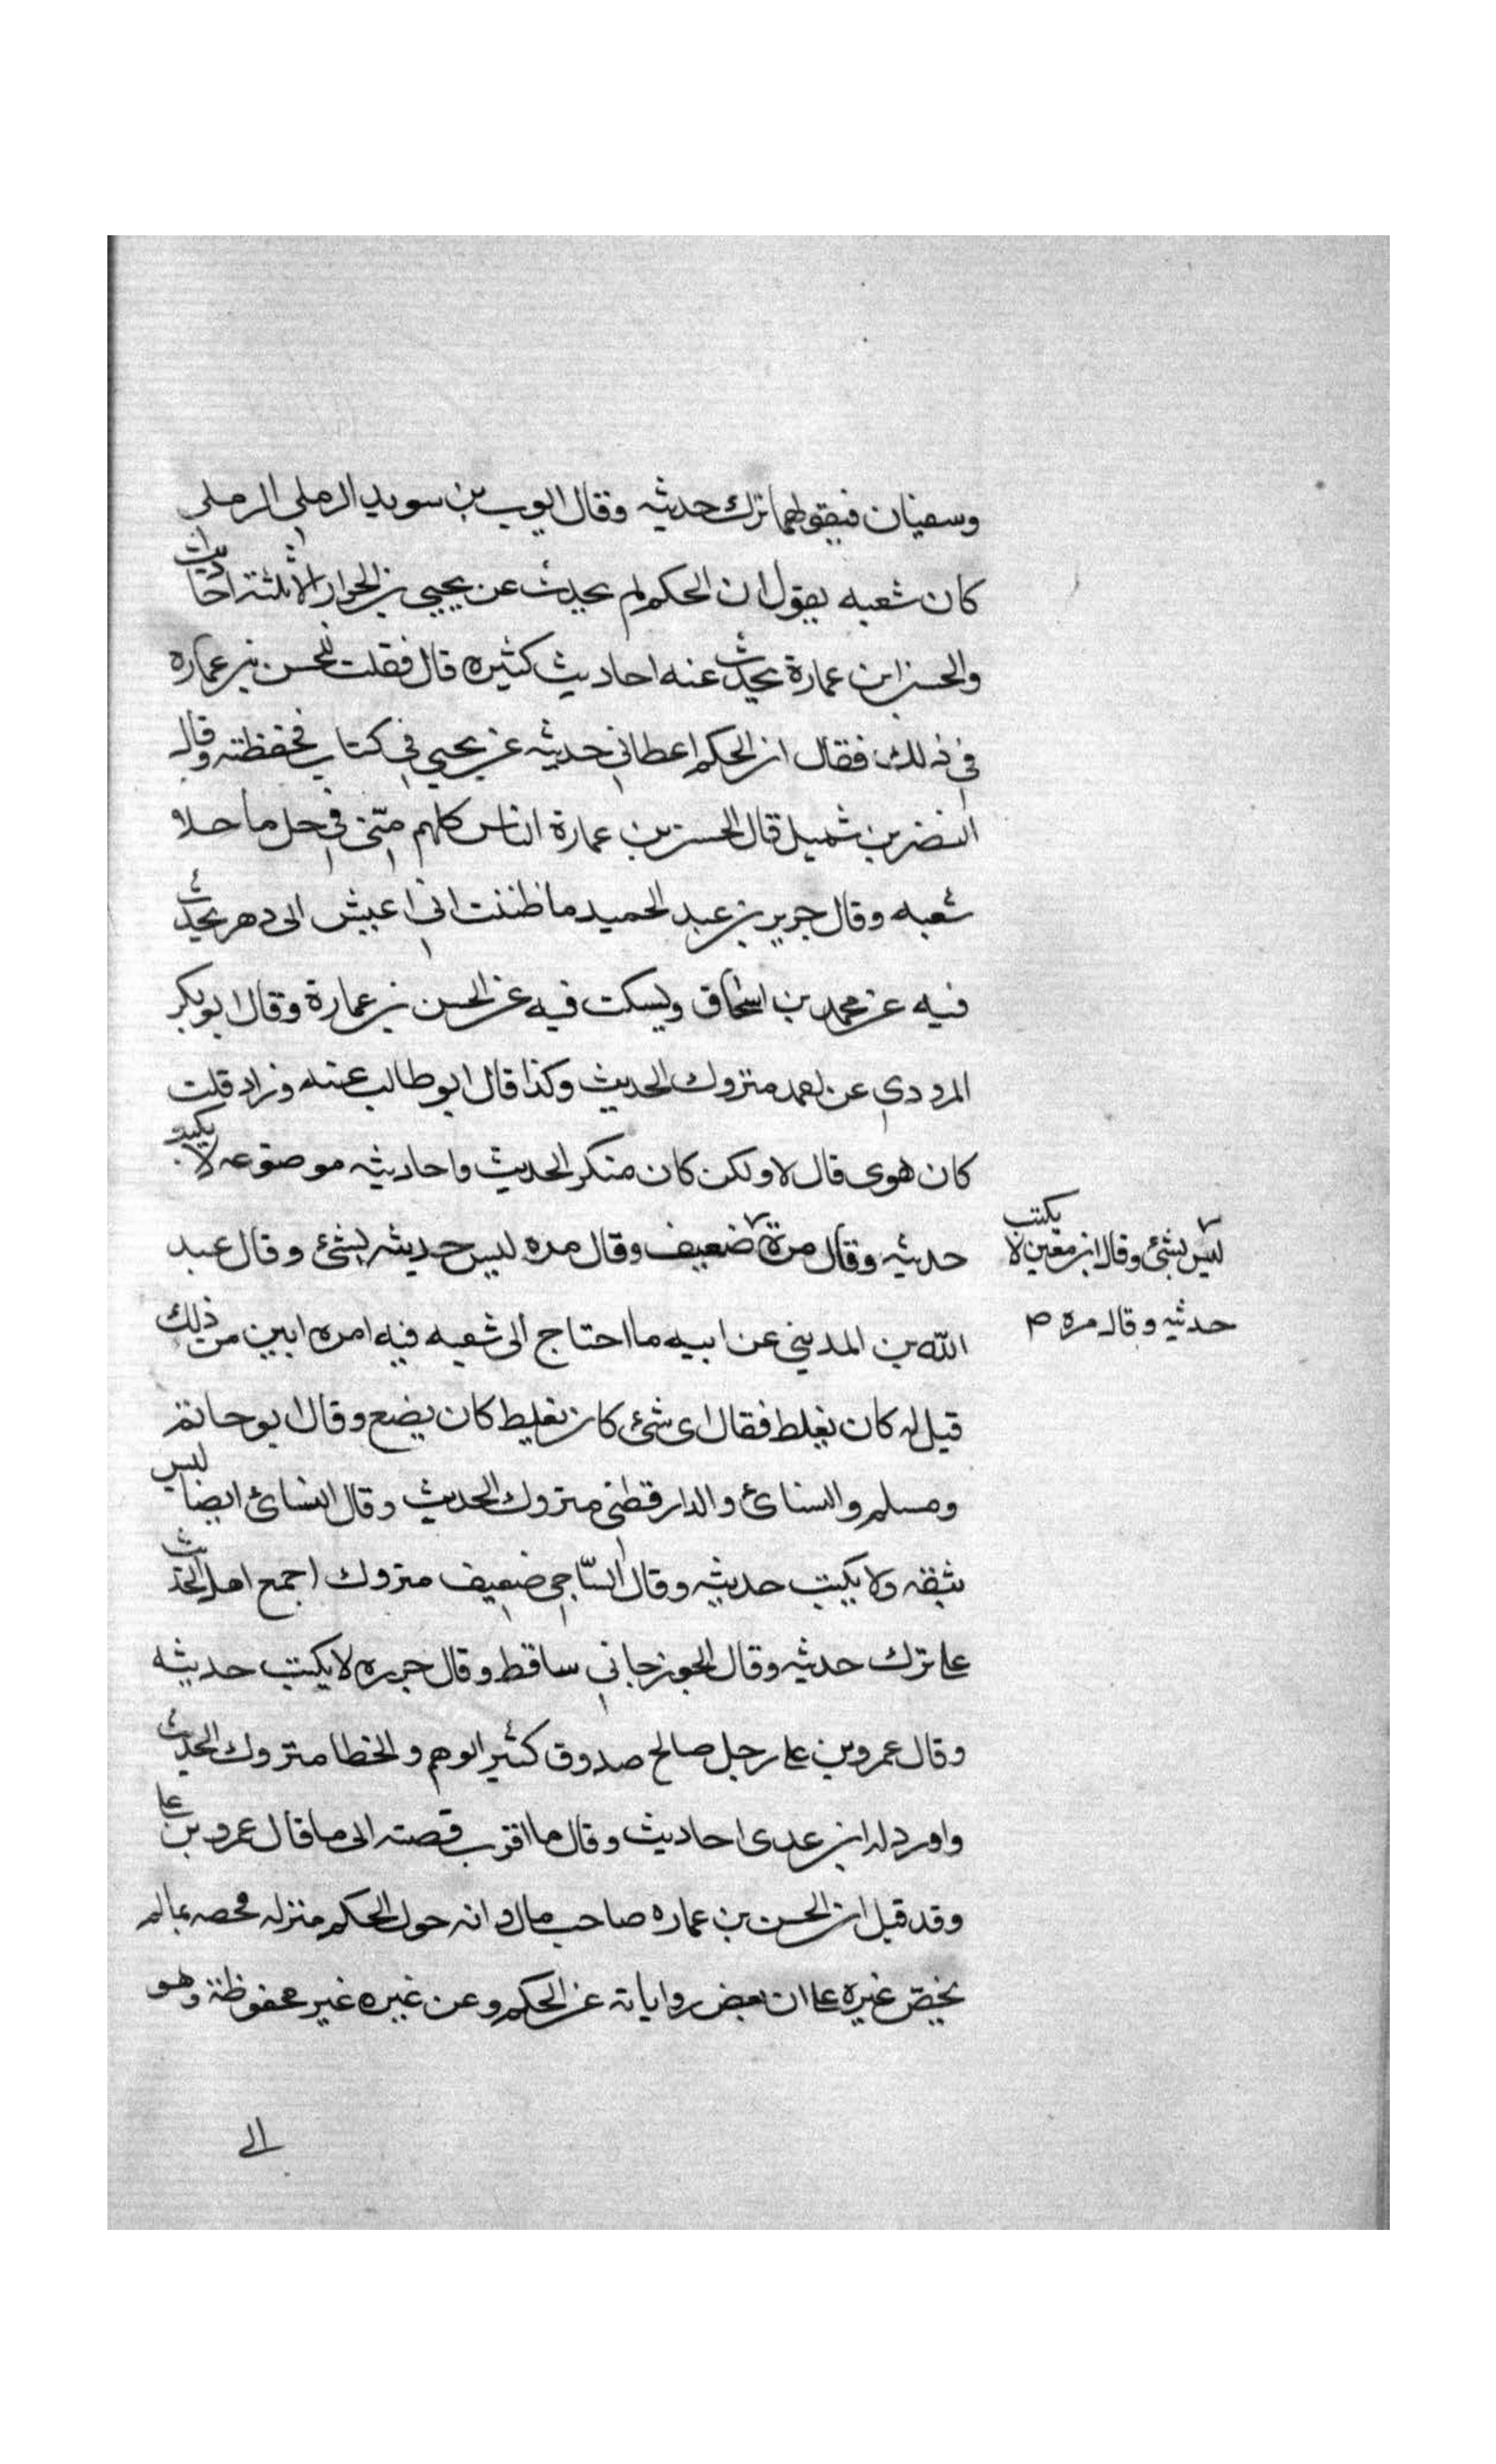 وسفيان فبقولهما ترك حديثه وقال ايوب بن سويد الرملي الرملي
كان شعبه يقول ان الحكم لم يحدث عن يحيى بن الجزار الا ثلثة احاديث
والحسن ابن عمارة يحدث عنه احاديث كثيره قال فقلت للحسن بن عماره
في ذلك فقال ان الحكم اعطاني حديثه عن يحيى في كتاب فحفظته وقال
النضر بن شميل قال الحسن بن عمارة الناس كلهم منى في حل ما خلا
شعبه وقال جرير بن عبد الحميد ما ظننت انى اعيش الى دهر يحدث
فيه عن محمد بن اسحاق ويسكت فيه عن الحسن بن عمارة وقال ابو بكر
المرودي عن احمد متروك الحديث وكذا قال ابو طالب عنه وزاد قلت
كان هوى قال لا ولكن كان منكر الحديث واحاديثه موضوعه لا يكتب
حديثه وقال مرة ضعيف وقال مره ليس حديثه بشئ وقال عبد
ليس بشئ وقال ابن معين لا يكتب
حديثه وقال مره ص
الله بن المديني عن ابيه ما احتاج الى شعبه فيه امره ابين من ذلك
قيل له كان يغلط فقال اى شئ كان يغلط كان يضع وقال ابو حاتم
ومسلم والنسائ والدارقطنى متروك الحديث وقال النسائ ايضا ليس
بثقه ولا يكتب حديثه وقال الساجي ضعيف متروك اجمع اهل الحديث
على ترك حديثه وقال الجوزجاني ساقط وقال جزره لا يكتب حديثه
وقال عمرو بن على رجل صالح صدوق كثير الوهم والخطا متروك الحديث
واورد له ابن عدى احاديث وقال ما اقرب قصته الى ما قال عمرو بن على
وقد قيل ان الحسن بن عماره صاحب مال وانه حول الحكم منزله فخصه بما لم
يخص غيره على ان بعض رواياته عن الحكم وعن غيره غير محفوظة وهو
الى